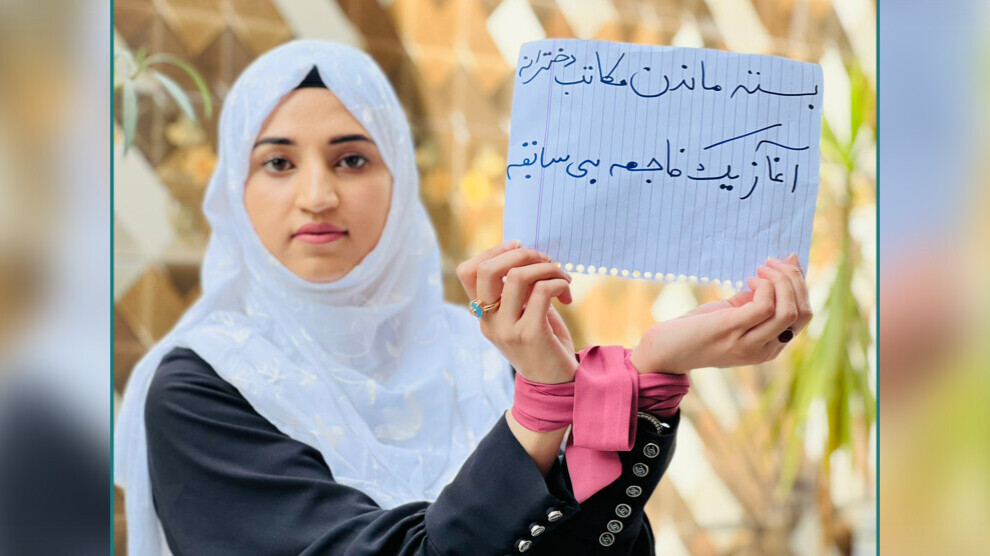 بسته ماندن مکاتب دخترانه
آغاز یک فاجعه بی سابقه